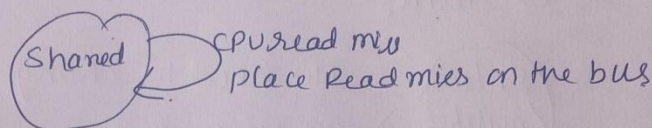 Shared
CPU read miss
place Read mies on the bus